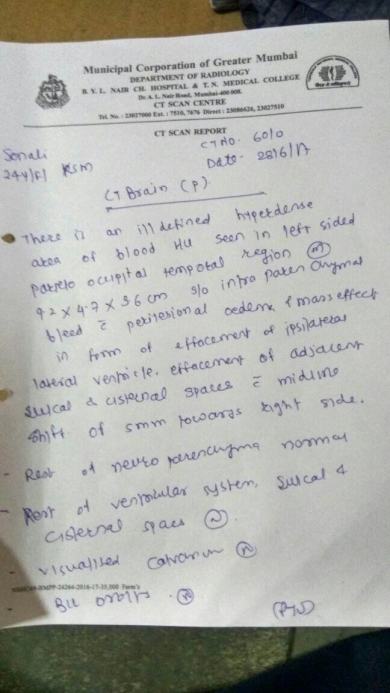 Municipal Corporation of Greater Mumbai
DEPARTMENT OF RADIOLOGY
B. Y. L. NAIR CH. HOSPITAL & T. N. MEDICAL COLLEGE
Dr. A. L. Nair Road, Mumbai-400 008.
CT SCAN CENTRE
Tel. No. : 23027000 Ext. : 7510, 7676 Direct : 23086628, 23027510
CT SCAN REPORT
Sonali CT NO. 6010
24Y/F/ KSM Date- 28/6/17
CT Brain (P)
There is an ill defined hyperdense
area of blood HU seen in left sided
parieto occipital temporal region (m)
9.2 x 4.7 x 3.6 cm s/o intra parenchymal
bleed c perilesional oedema & mass effect
in form of effacement of ipsilateral
lateral ventricle, effacement of adjacent
sulcal & cisternal spaces c midline
shift of 5mm towards right side.
- Rest of neuro parenchyma normal
- Rest of ventricular system, sulcal &
cisternal spaces (N)
- visualised calvarium (N)
- B/L orbits - (N)
(PTO)